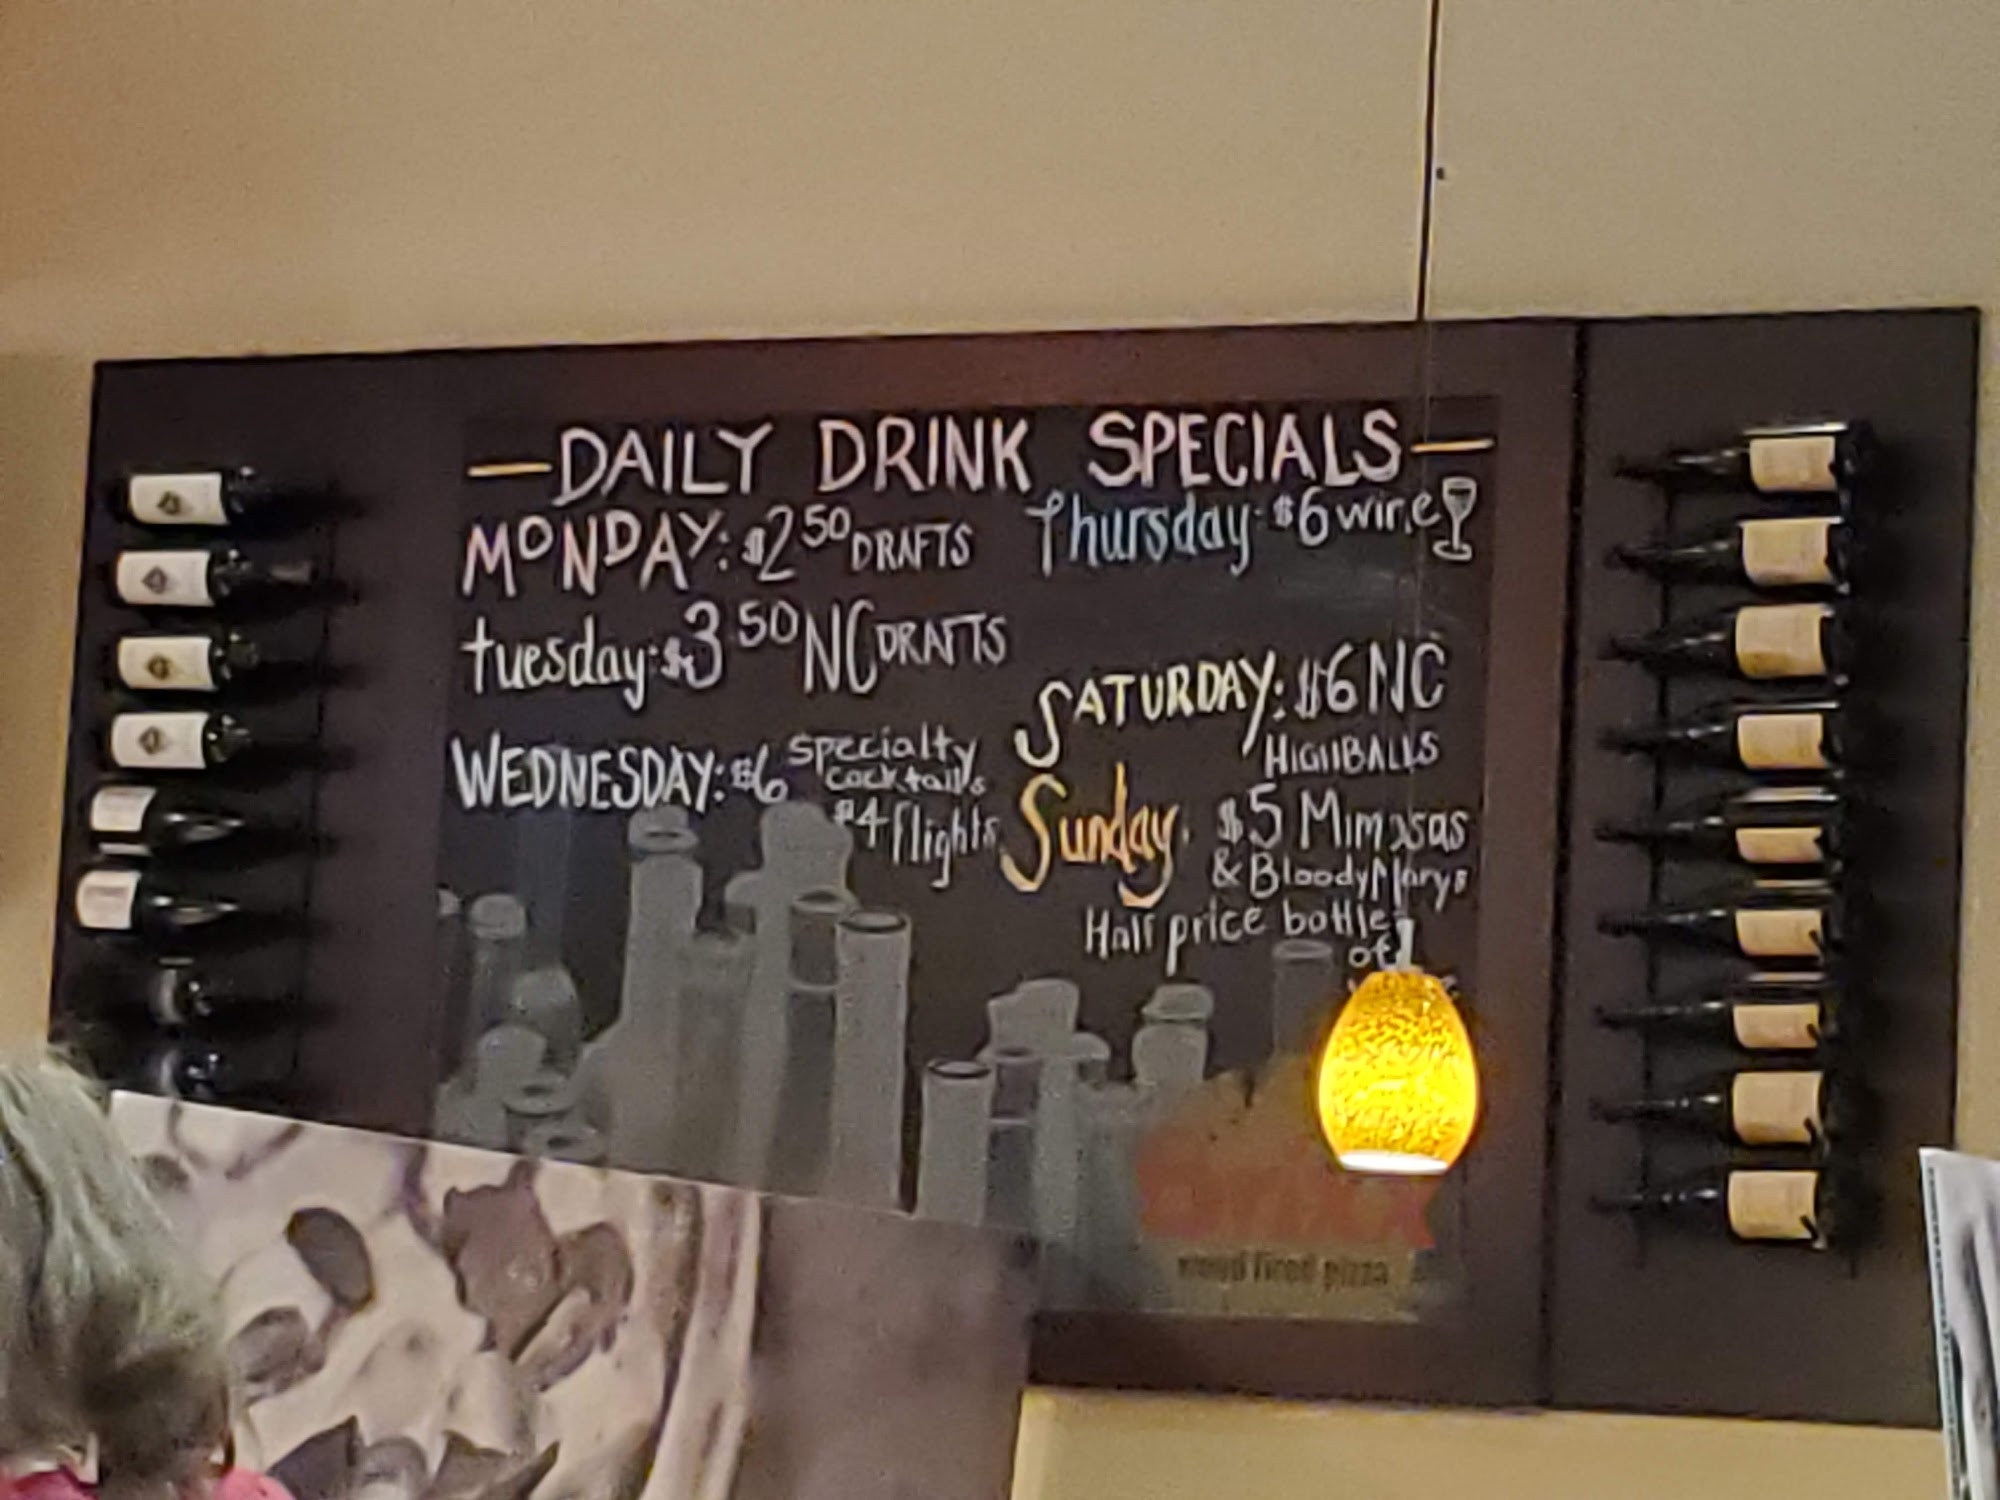 DAILY DRINK SPECIALS
MONDAY: $2.50 DRAFTS
tuesday: $3.50 NC DRAFTS
WEDNESDAY: $6 specialty
cocktails
$4 flights
Thursday $6 wine
SATURDAY: $6 NC
HIGHBALLS
Sunday. $5 Mimosas
& Bloody Marys
Half price bottle
of
wood fired pizza